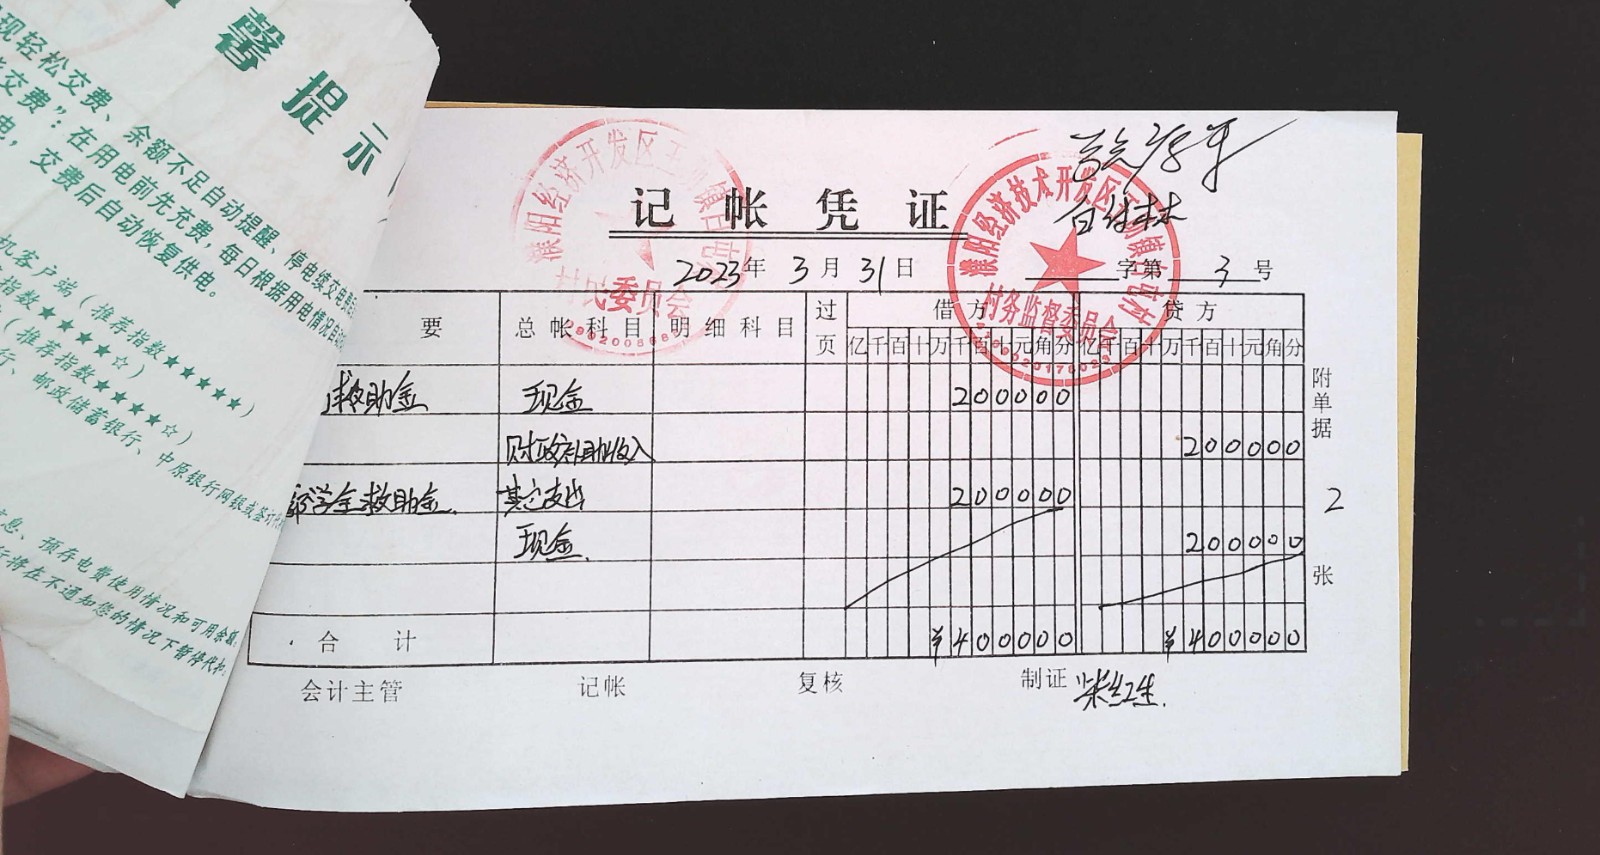 馨提示
现轻松交费、余额不足自动提醒、停电续交电费后
交费”：在用电前先充费，每日根据用电情况自动
电，交费后自动恢复供电。
机客户端（推荐指数★★★★★）
指数★★★★☆）
（推荐指数★★★★☆）
行、邮政储蓄银行、中原银行网银或签订
息、预存电费使用情况和可用余额
行将在不通知您的情况下暂停代扣
记帐凭证
2023年3月31日
字第3号
濮阳经济开发区王助镇
村民委员会
濮阳经济技术开发区王助镇
村务监督委员会
要 总帐科目 明细科目 过页 借方 贷方
亿千百十万千百十元角分 亿千百十万千百十元角分
救助金 现金 200000
财政补助收入 200000
学金救助金 其它支出 200000
现金 200000
合计 ¥400000 ¥400000
附单据 2 张
会计主管 记帐 复核 制证 柴红生